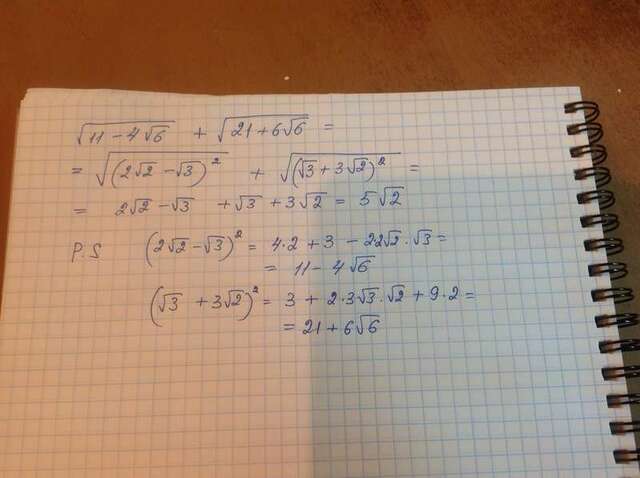 √(11 − 4√6) + √(21 + 6√6) =
= √((2√2 − √3)²) + √((√3 + 3√2)²) =
= 2√2 − √3 + √3 + 3√2 = 5√2
P.S (2√2 − √3)² = 4·2 + 3 − 2·2√2·√3 =
= 11 − 4√6
(√3 + 3√2)² = 3 + 2·3√3·√2 + 9·2 =
= 21 + 6√6